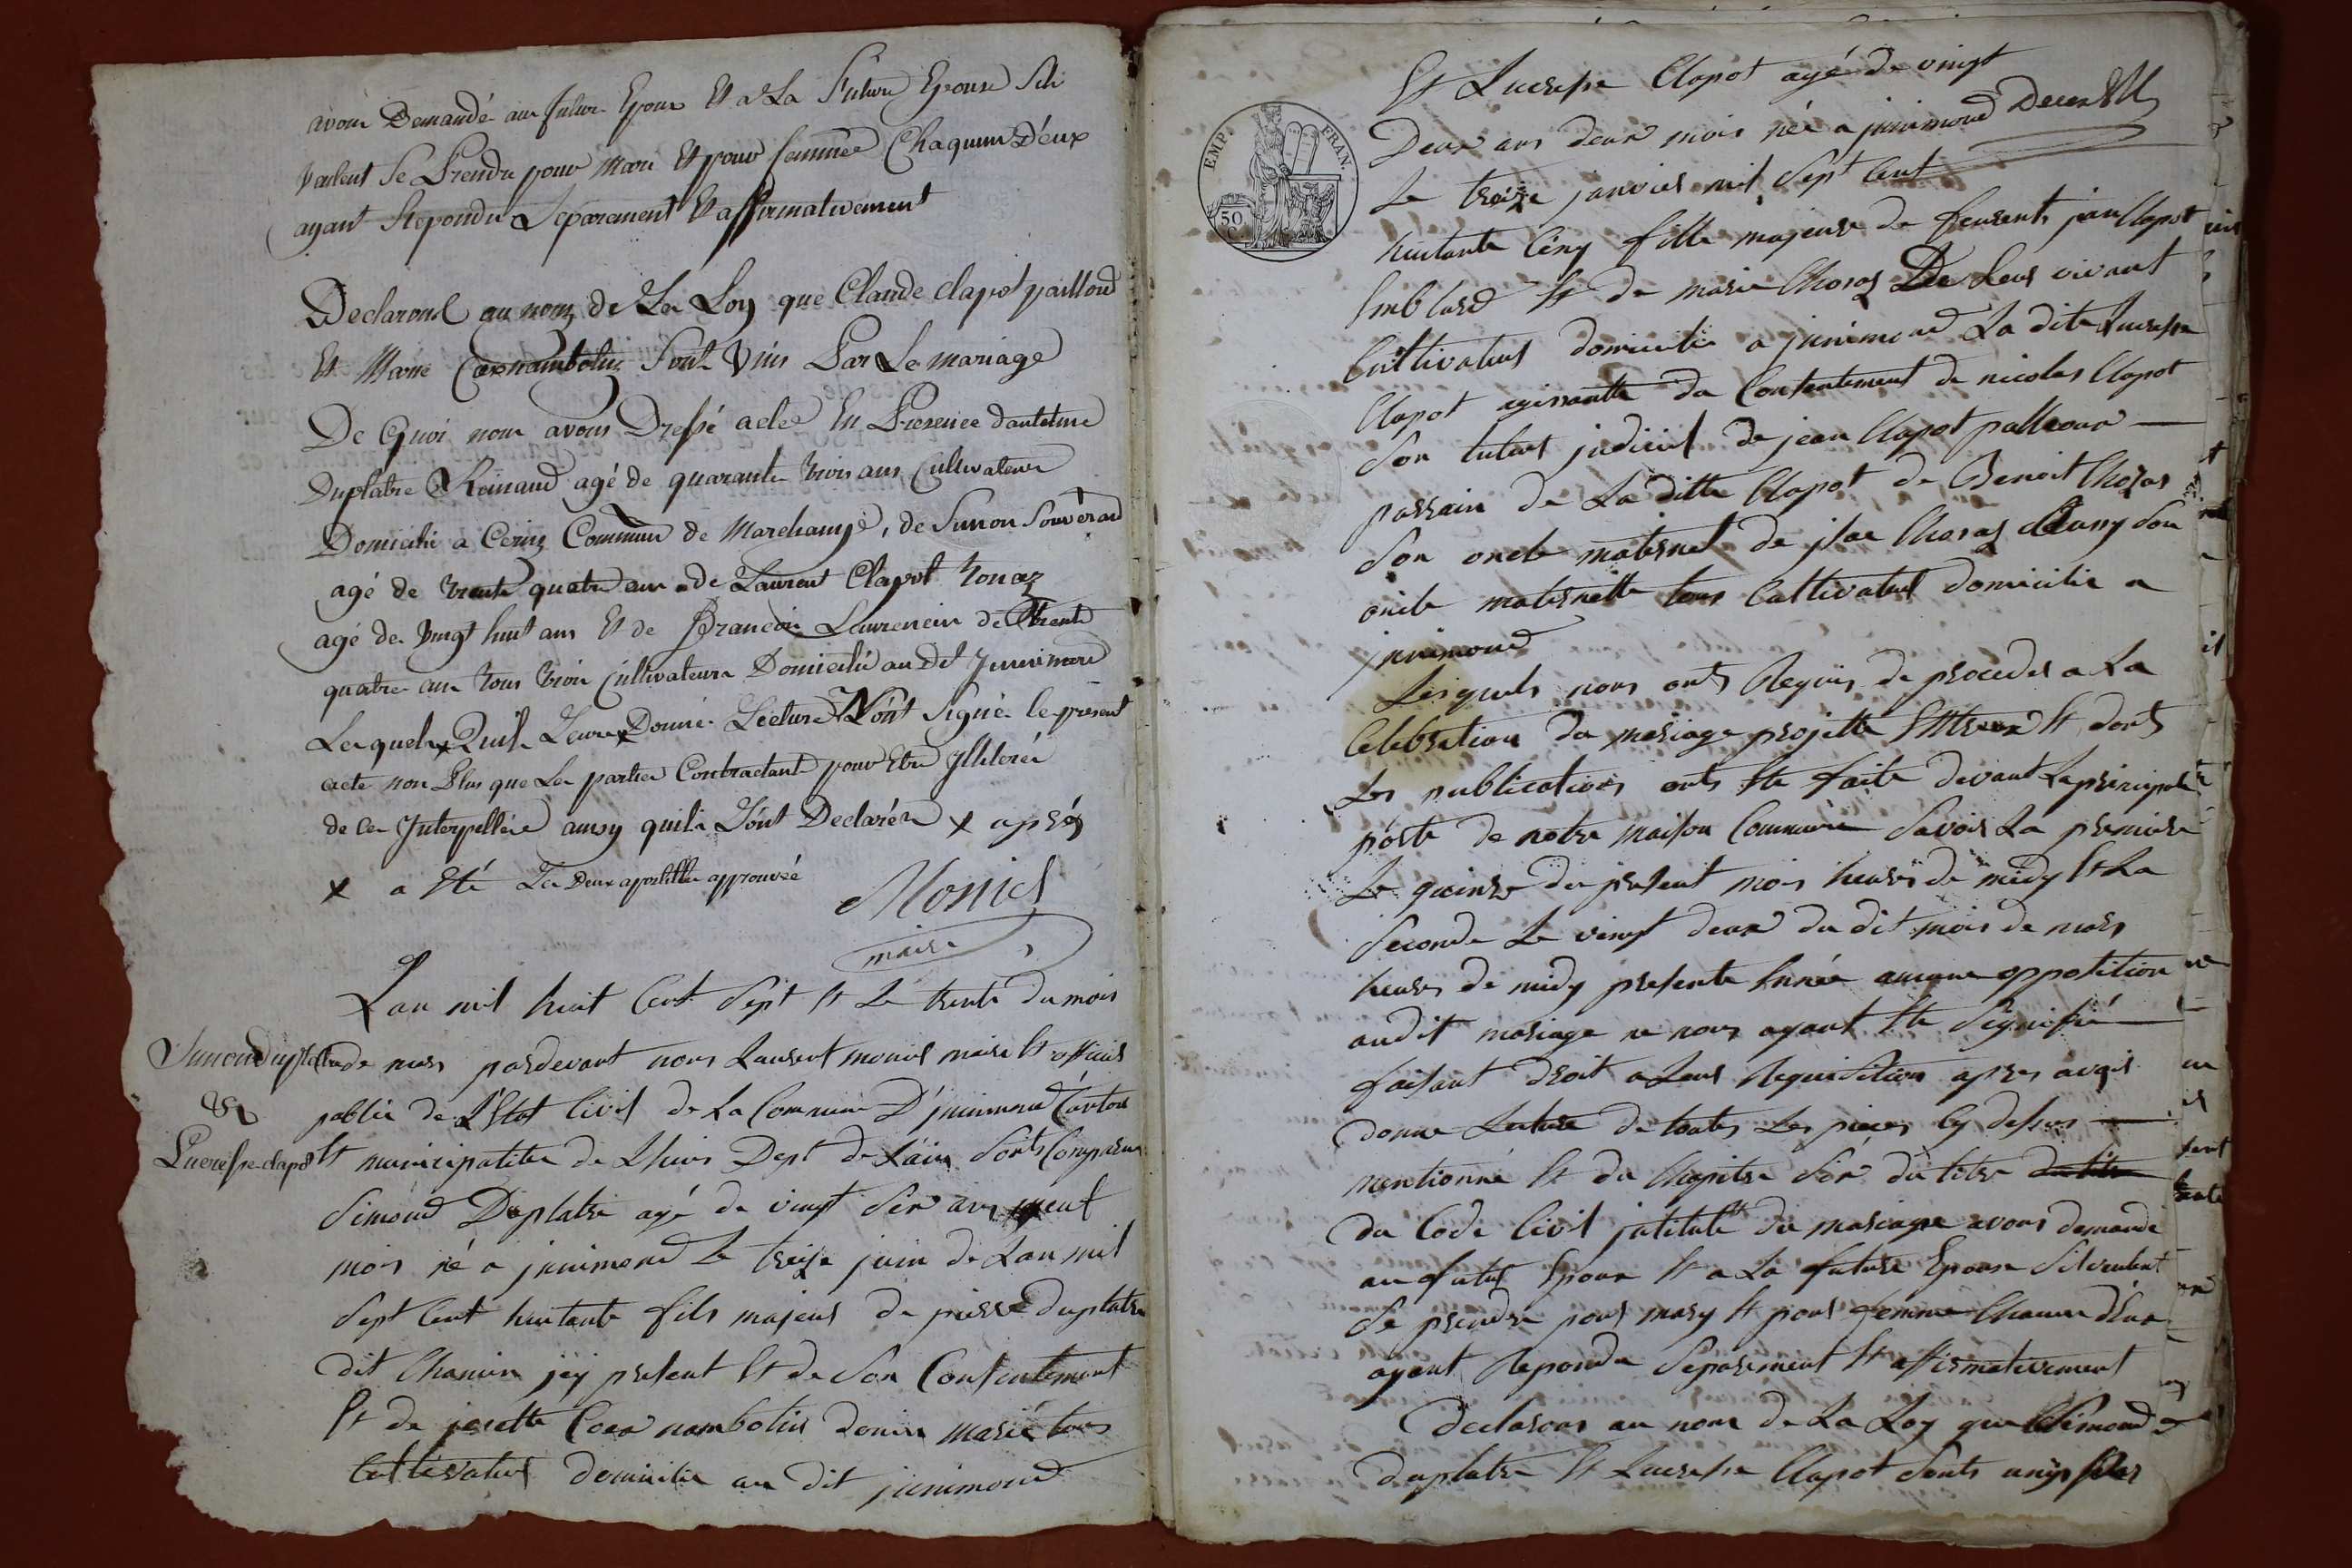 avons Demandé au futur Epoux Et a La Future Epouse Sils
veulent Se Prendre pour Mari Et pour femme Chaqun D'eux
ayant Repondu Séparement Et affirmativement
Declarons au nom de La Loy que Claude Clapot pailloud
Et Marie Sont Unis Par Le mariage
De Quoi nous avons Dressé acte En Presence dantelme
Duplatre Reinaud agé de quarante trois ans, Cultivateur
Domicilié a Cerin Commune de Marchamp, de Simon Souverand
agé de trente quatre ans de Laurent Clapot
agé de Vingt huit ans Et de François Laurencin de trente
quatre ans tous trois Cultivateurs Domicilié au dit Innimond
Lesquels x Quils Leur x Donné Lecture N'ont Signé le present
acte non Plus que Les parties Contractant pour Etre Illiterés
de Ce Interpellés ainsy quils L'ont Declarés x après
x a Eté Les Deux apostilles approuvée
Moniel
maire
Lan mil huit Cent Sept Et Le trente du mois
Simond duplatre
&
Lucresse clapot
de mars pardevant nous Laurent moniel maire Et officier
public de L'Etat Civil de La Commune D'jnnimond Canton
Et municipalitée de Lhuis Dept de Lain Sonts Comparus
Simond Duplatre agé de vingt Six ans neuf
mois né a jnnimond Le treize juin de Lan mil
Sept Cent huitante fils majeur de pierre duplatre
dit Chanin jcy present Et de Son Consentement
Et de josette nambotin tous
Cultivateur domicilie au dit jnnimond
EMP. FRAN.
50
C.
Et Lucresse Clapot agé de vingt
Deux ans deux mois née a jnnimond
Le treize janvier mil Sept Cent
huitante Cinq fille majeure de jean Clapot
Emblard Et de marie Choraz De Leur vivant
Cultivateur domicilie a jnnimond La dite Lucresse
Clapot agissante du Consentement de nicolas Clapot
Son tuteur de jean Clapot
parrain de La ditte Clapot de Benoit Choras
Son oncle maternel de Choraz Son
oncle maternelle tous Cultivateur domicilie a
jnnimond
Lesquels nous onts Requis de proceder a La
Celebration du mariage projette Et donts
Les publications onts Ete faite devant La principale
porte de notre maison Commune Savoir La premiere
Le quinze du present mois heures de midy Et La
Seconde Le vingt deux du dit mois de mars
heures de midy presente Année aucune oppotition
audit mariage ne nous ayant Ete Signifié
faisant droit a Leur Requisition apres avoir
donne Lecture de toutes Les pieces Cy dessus
mentionné Et du Chapitre Six du titre
du Code Civil jntitule du mariage avons demandé
au futur Epoux Et a La future Epouse Sil veulent
Se prendre pour mary Et pour femme Chacun d'Eux
ayant Repondu Séparement Et affirmativement
declarons au nom de La Loy que Simond
duplatre Et Lucresse Clapot Sonts unis par